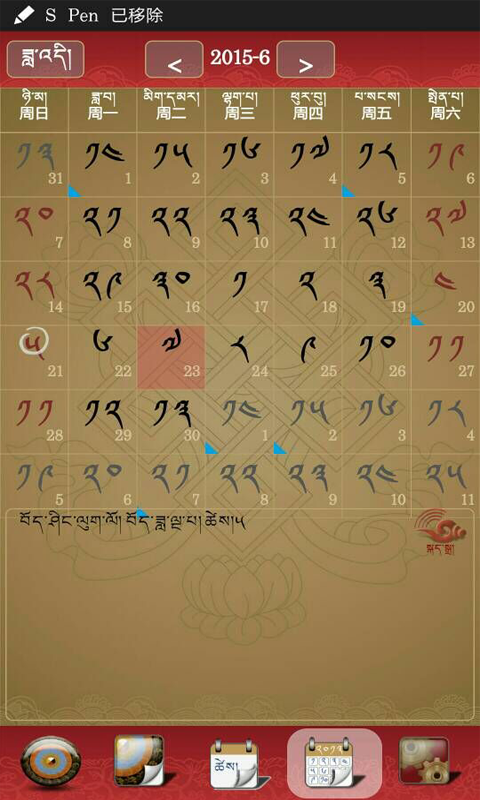 S Pen 已移除
ཟླ་འདི། < 2015-6 >
ཉི་མ། ཟླ་བ། མིག་དམར། ལྷག་པ། ཕུར་བུ། པ་སངས། སྤེན་པ།
周日 周一 周二 周三 周四 周五 周六
༡༣ ༡༤ ༡༥ ༡༦ ༡༧ ༡༨ ༡༩
31 1 2 3 4 5 6
༢༠ ༢༡ ༢༢ ༢༣ ༢༤ ༢༦ ༢༧
7 8 9 10 11 12 13
༢༨ ༢༩ ༣༠ ༡ ༢ ༣ ༤
14 15 16 17 18 19 20
༥ ༦ ༧ ༨ ༩ ༡༠ ༡༡
21 22 23 24 25 26 27
༡༡ ༡༢ ༡༣ ༡༤ ༡༥ ༡༦ ༡༨
28 29 30 1 2 3 4
༡༩ ༢༠ ༢༡ ༢༢ ༢༣ ༢༤ ༢༥
5 6 7 8 9 10 11
བོད་ཤིང་ལུག་ལོ། བོད་ཟླ་ལྔ་པ། ཚེས།༥
ཚེས།